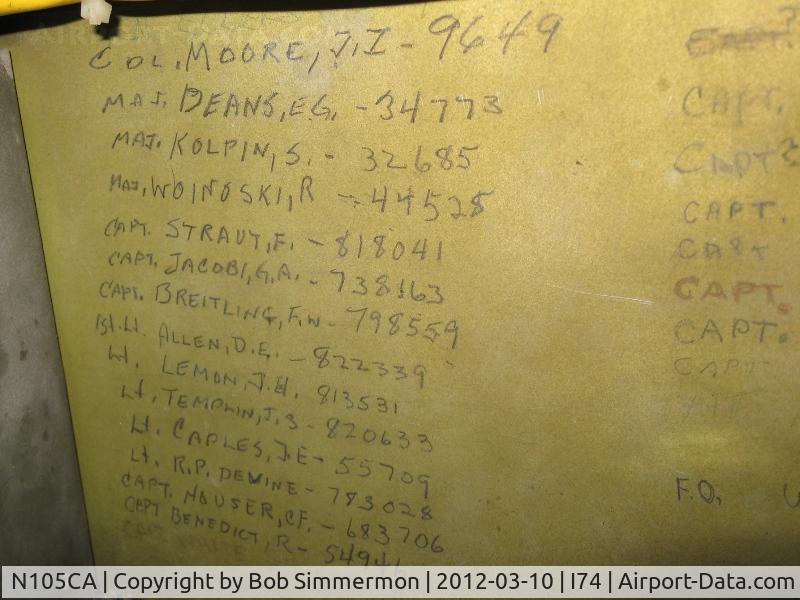 COL. MOORE, J.I - 9649
MAJ. DEANS, E.G. - 34773
MAJ. KOLPIN, S. - 32685
MAJ. WOINOSKI, R - 44528
CAPT. STRAUT, F. - 818041
CAPT. JACOBI, G.A. - 738163
CAPT. BREITLING, F.W - 798559
1st. Lt. ALLEN, D.E. - 822339
Lt. LEMON, J.H. 813531
Lt. TEMPLIN, J.S - 820633
Lt. CAPLES, J.E - 55709
Lt. R.P. DEVINE - 783028
CAPT. HOUSER, CF. - 683706
CAPT BENEDICT, R - 5494
CAPT.
CAPT?
CAPT.
CAPT.
CAPT.
CAPT
F.O.
N105CA | Copyright by Bob Simmermon | 2012-03-10 | I74 | Airport-Data.com